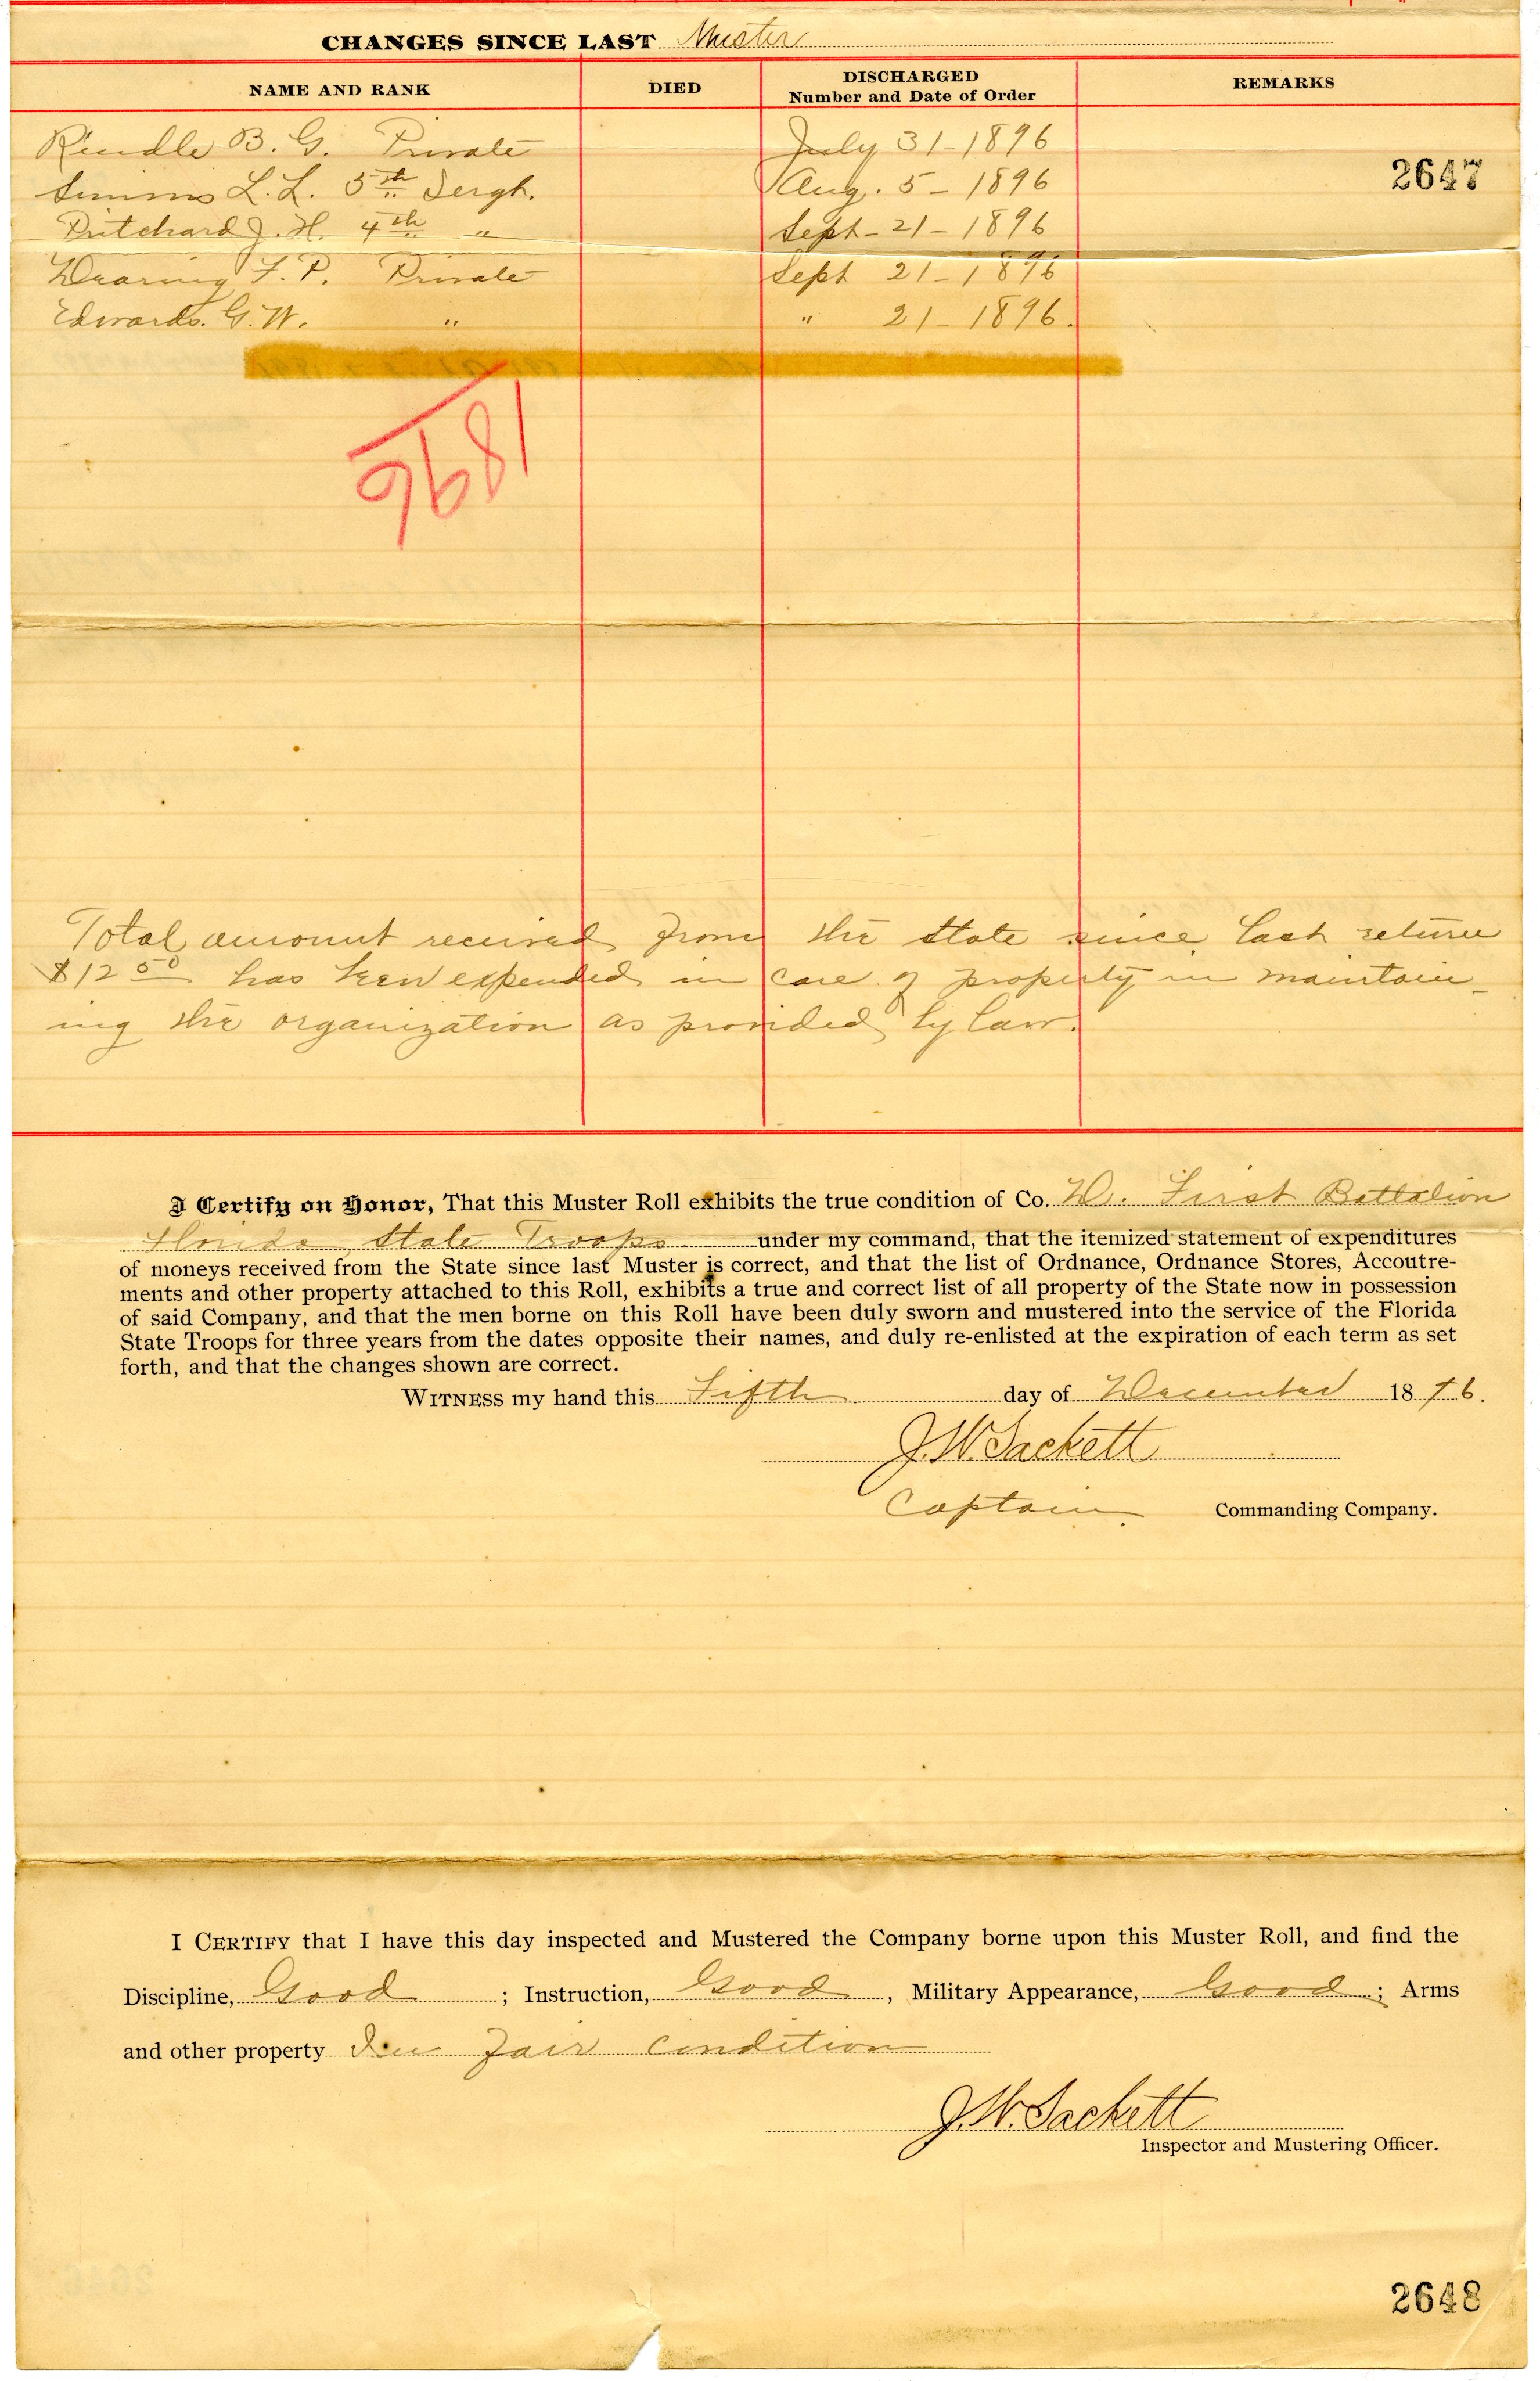 CHANGES SINCE LAST Muster
NAME AND RANK DIED DISCHARGED Number and Date of Order REMARKS
Rindle B. G. Private July 31-1896
2647
Simms L. L. 5th Sergt. Aug. 5-1896
Pritchard J. H. 4th " Sept-21-1896
Wearing F. P. Private Sept 21-1896
Edwards. G. W. " " 21-1896.
1896
Total amount received from the State since last return
$12 50 has been expended in care of property in maintain-
ing the organization as provided by law.
I Certify on Honor, That this Muster Roll exhibits the true condition of Co. D. First Battalion
Florida State Troops under my command, that the itemized statement of expenditures
of moneys received from the State since last Muster is correct, and that the list of Ordnance, Ordnance Stores, Accoutre-
ments and other property attached to this Roll, exhibits a true and correct list of all property of the State now in possession
of said Company, and that the men borne on this Roll have been duly sworn and mustered into the service of the Florida
State Troops for three years from the dates opposite their names, and duly re-enlisted at the expiration of each term as set
forth, and that the changes shown are correct.
WITNESS my hand this Fifth day of December 1896.
J. W. Sackett
Captain. Commanding Company.
I CERTIFY that I have this day inspected and Mustered the Company borne upon this Muster Roll, and find the
Discipline, Good ; Instruction, Good , Military Appearance, Good ; Arms
and other property In fair condition
J. W. Sackett
Inspector and Mustering Officer.
2648